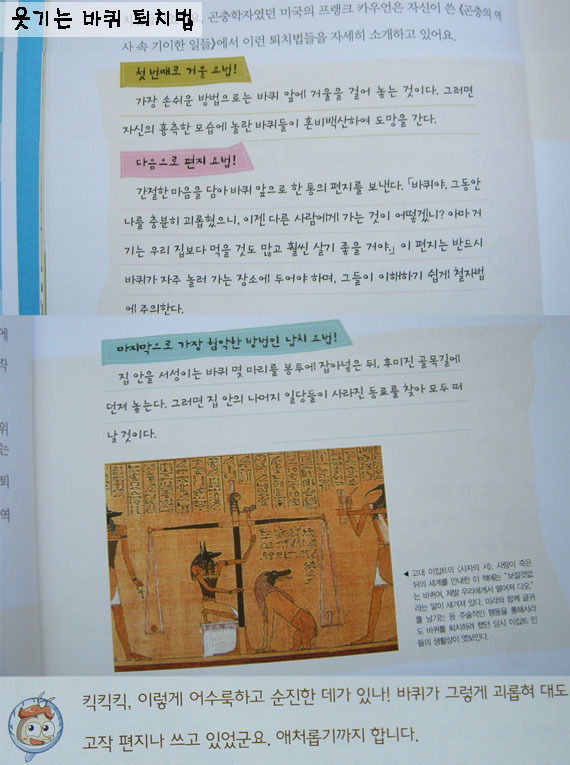 웃기는 바퀴 퇴치법
요. 곤충학자였던 미국의 프랭크 카우언은 자신이 쓴 《곤충의 역
사 속 기이한 일들》에서 이런 퇴치법들을 자세히 소개하고 있어요.
첫 번째로 거울 요법!
가장 손쉬운 방법으로는 바퀴 앞에 거울을 걸어 놓는 것이다. 그러면
자신의 흉측한 모습에 놀란 바퀴들이 혼비백산하여 도망을 간다.
다음으로 편지 요법!
간절한 마음을 담아 바퀴 앞으로 한 통의 편지를 보낸다. 「바퀴야, 그동안
나를 충분히 괴롭혔으니, 이젠 다른 사람에게 가는 것이 어떻겠니? 아마 거
기는 우리 집보다 먹을 것도 많고 훨씬 살기 좋을 거야.」 이 편지는 반드시
바퀴가 자주 놀러 가는 장소에 두어야 하며, 그들이 이해하기 쉽게 철자법
에 주의한다.
에
작
위
는
퇴
역
마지막으로 가장 험악한 방법인 납치 요법!
집 안을 서성이는 바퀴 몇 마리를 봉투에 잡아넣은 뒤, 후미진 골목길에
던져 놓는다. 그러면 집 안의 나머지 일당들이 사라진 동료를 찾아 모두 떠
날 것이다.
◀ 고대 이집트의 〈사자의 서〉. 사람이 죽은
뒤의 세계를 안내한 이 책에는 "보잘것없
는 바퀴여, 제발 우리에게서 떨어져 다오."
라는 말이 새겨져 있다. 미라와 함께 글귀
를 남기는 등 주술적인 행동을 통해서라
도 바퀴를 퇴치하려 했던 당시 이집트 인
들의 생활상이 엿보인다.
킥킥킥, 이렇게 어수룩하고 순진한 데가 있나! 바퀴가 그렇게 괴롭혀 대도
고작 편지나 쓰고 있었군요. 애처롭기까지 합니다.